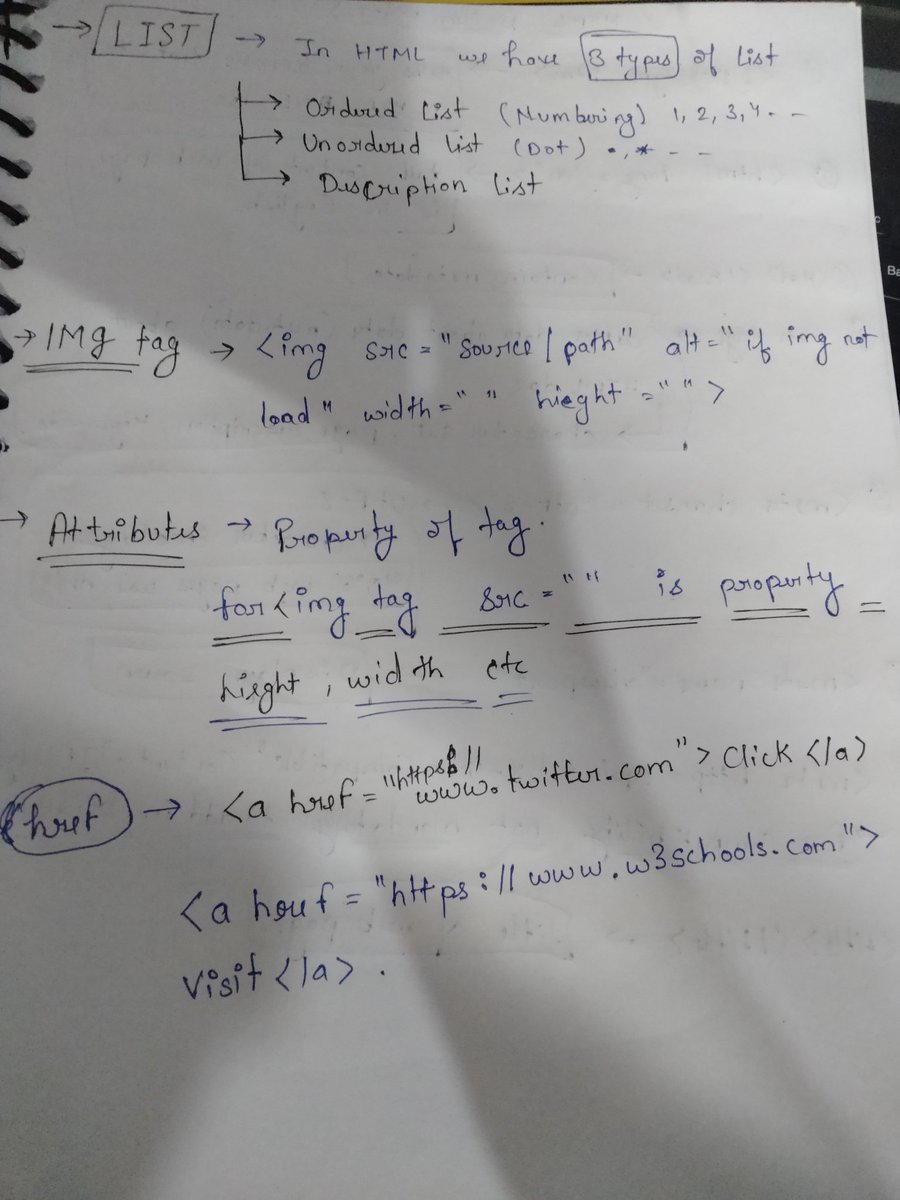 → LIST → In HTML we have 3 types of list
→ Ordered list (Numbering) 1, 2, 3, 4 . - -
→ Unordered list (Dot) •, * - -
→ Description list
→ IMg tag → <img src = "source / path" alt = "if img not
load" width = " " hieght = " ">
→ Attributes → Property of tag.
for <img tag src = " " is property =
hieght , width etc
href → <a href = "https://
www.twitter.com"> Click </a>
<a href = "https://www.w3schools.com">
Visit </a> .
Ba